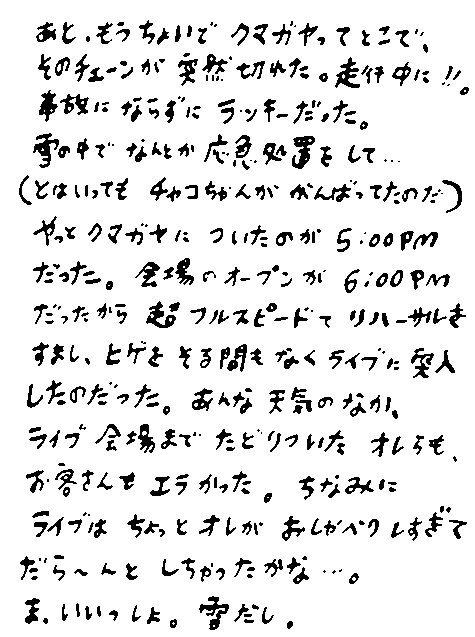 あと、もうちょいで クマガヤってとこで、
そのチェーンが 突然 切れた。走行中に!!。
事故に ならずに ラッキーだった。
雪の中で なんとか 応急処置をして…
(とはいっても チャコちゃんが がんばってたのだ)
やっと クマガヤに ついたのが 5:00PM
だった。会場のオープンが 6:00PM
だったから 超 フルスピードで リハーサルを
すまし、ヒゲを そる間も なく ライブに 突入
したのだった。あんな 天気の なか、
ライブ 会場まで たどりついた オレらも、
お客さんも エラかった。ちなみに
ライブは ちょっと オレが おしゃべりしすぎて
だら〜んと しちゃったかな…。
ま、いいっしょ。雪だし。